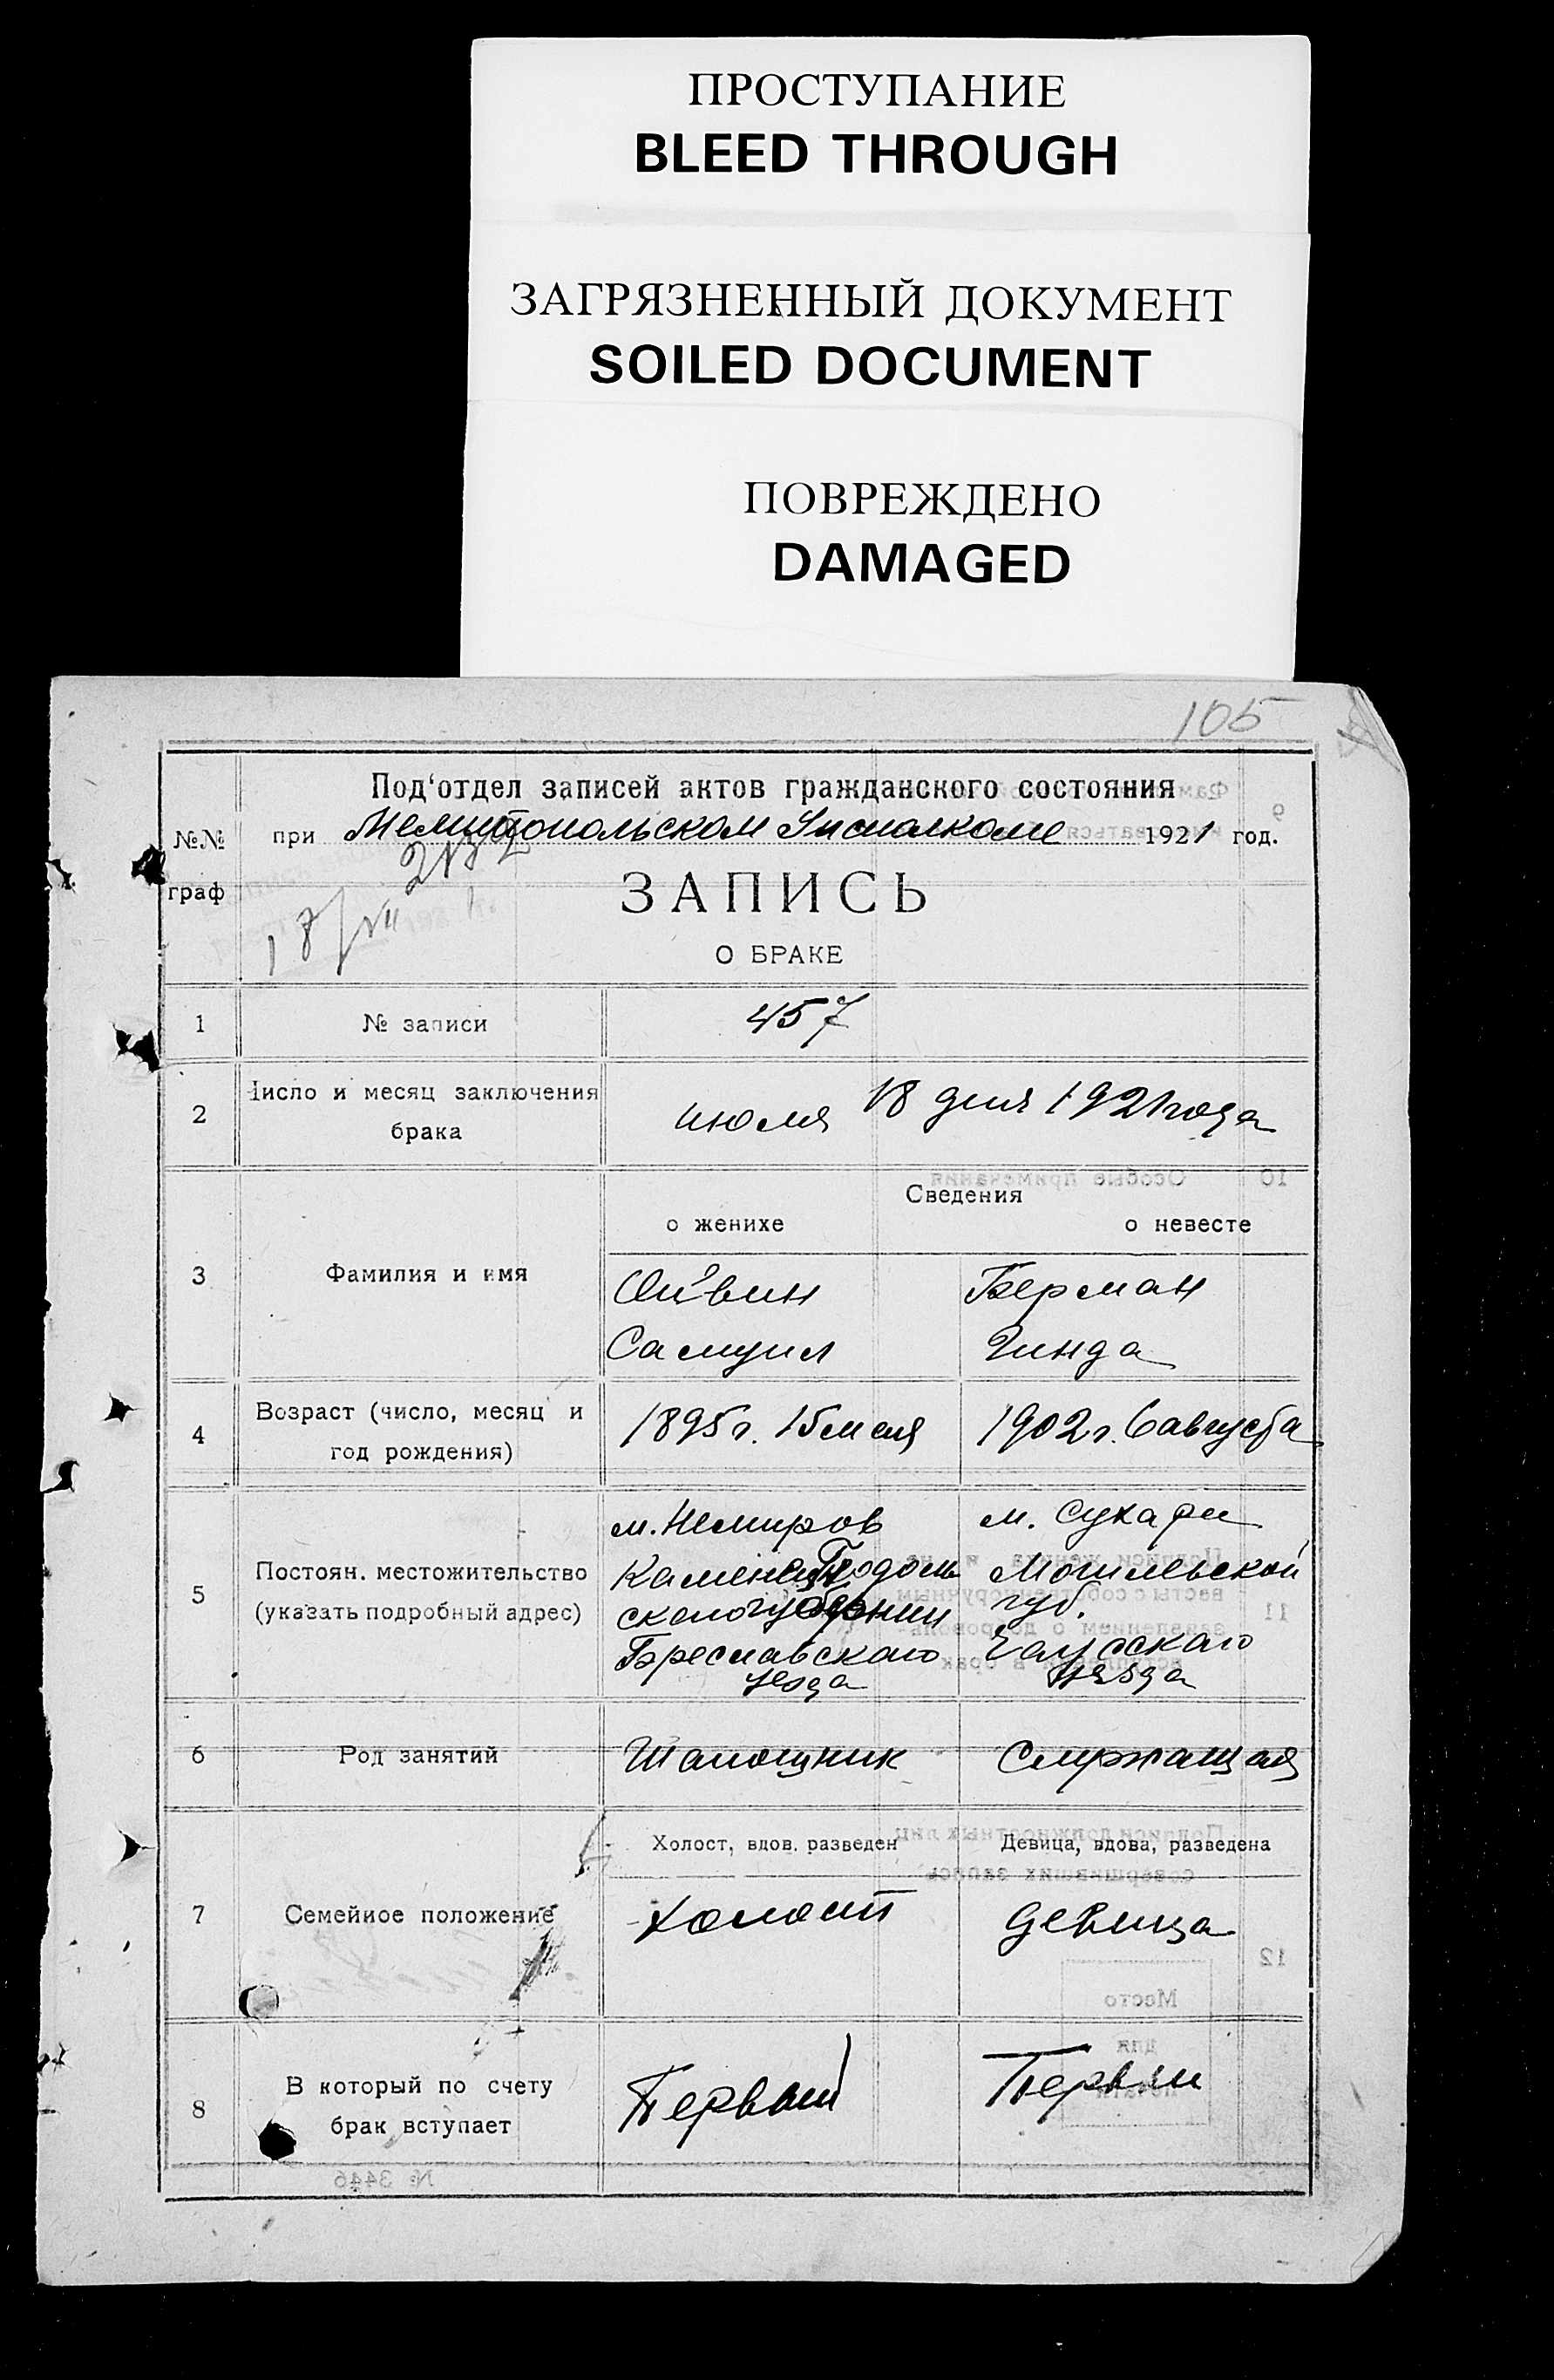 ПРОСТУПАНИЕ
BLEED THROUGH
ЗАГРЯЗНЕННЫЙ ДОКУМЕНТ
SOILED DOCUMENT
ПОВРЕЖДЕНО
DAMAGED
105
Под‘отдел записей актов гражданского состояния
№№ граф
при Мелитопольском Исполкоме 1921 год.
18/VII
ЗАПИСЬ
О БРАКЕ
1 № записи 457
2 Число и месяц заключения брака июля 18 дня 1921 года
Сведения
о женихе о невесте
3 Фамилия и имя Ойвин Берман
Самуил Гинда
4 Возраст (число, месяц и год рождения) 1895 г. 15 мая 1902 г. 6 августа
5 Постоян. местожительство (указать подробный адрес)
м. Немиров м. Сухари
Каменец Подоль Могилевской
ской губернии губ.
Бреславского Чаусского
уезда уезда
6 Род занятий Шапошник Служащая
Холост, вдов. разведен Девица, вдова, разведена
7 Семейное положение холост девица
8 В который по счету брак вступает Первый Первый
№ 3446